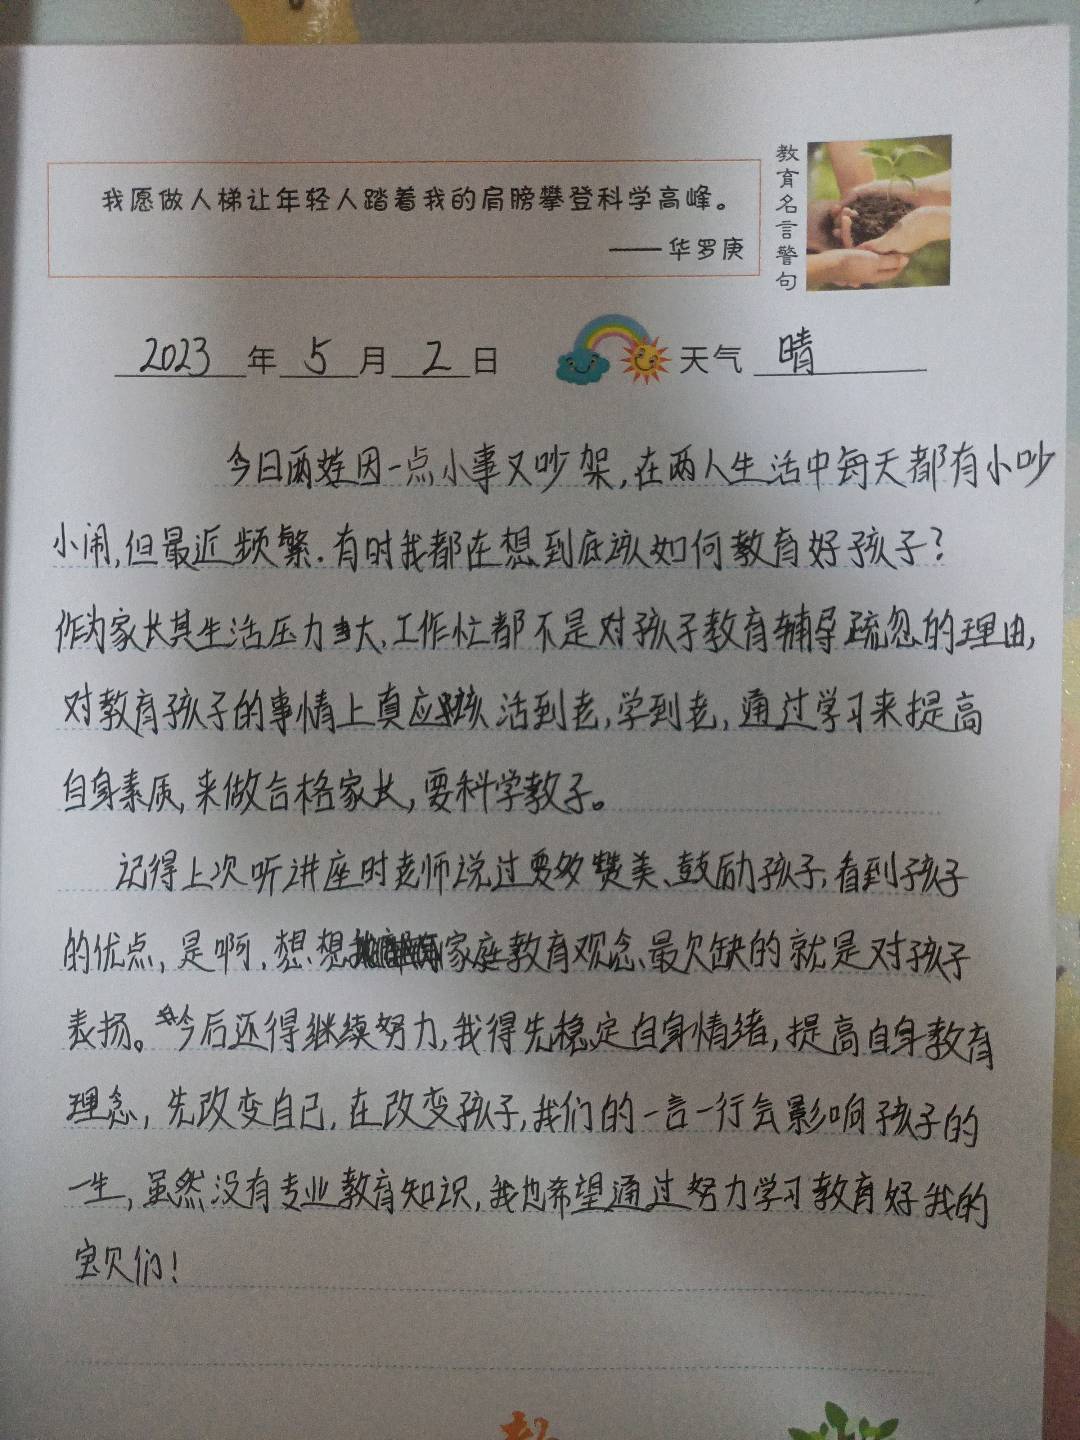 我愿做人梯让年轻人踏着我的肩膀攀登科学高峰。
——华罗庚
教育名言警句
2023年5月2日 天气 晴
今日两娃因一点小事又吵架,在两人生活中每天都有小吵
小闹,但最近频繁.有时我都在想到底该如何教育好孩子?
作为家长其生活压力大,工作忙都不是对孩子教育辅导疏忽的理由,
对教育孩子的事情上真应该活到老,学到老,通过学习来提高
自身素质,来做合格家长,要科学教子。
记得上次听讲座时老师说过要多赞美、鼓励孩子,看到孩子
的优点,是啊,想想家庭教育观念最欠缺的就是对孩子
表扬。今后还得继续努力,我得先稳定自身情绪,提高自身教育
理念,先改变自己,在改变孩子,我们的一言一行会影响孩子的
一生,虽然没有专业教育知识,我也希望通过努力学习教育好我的
宝贝们!